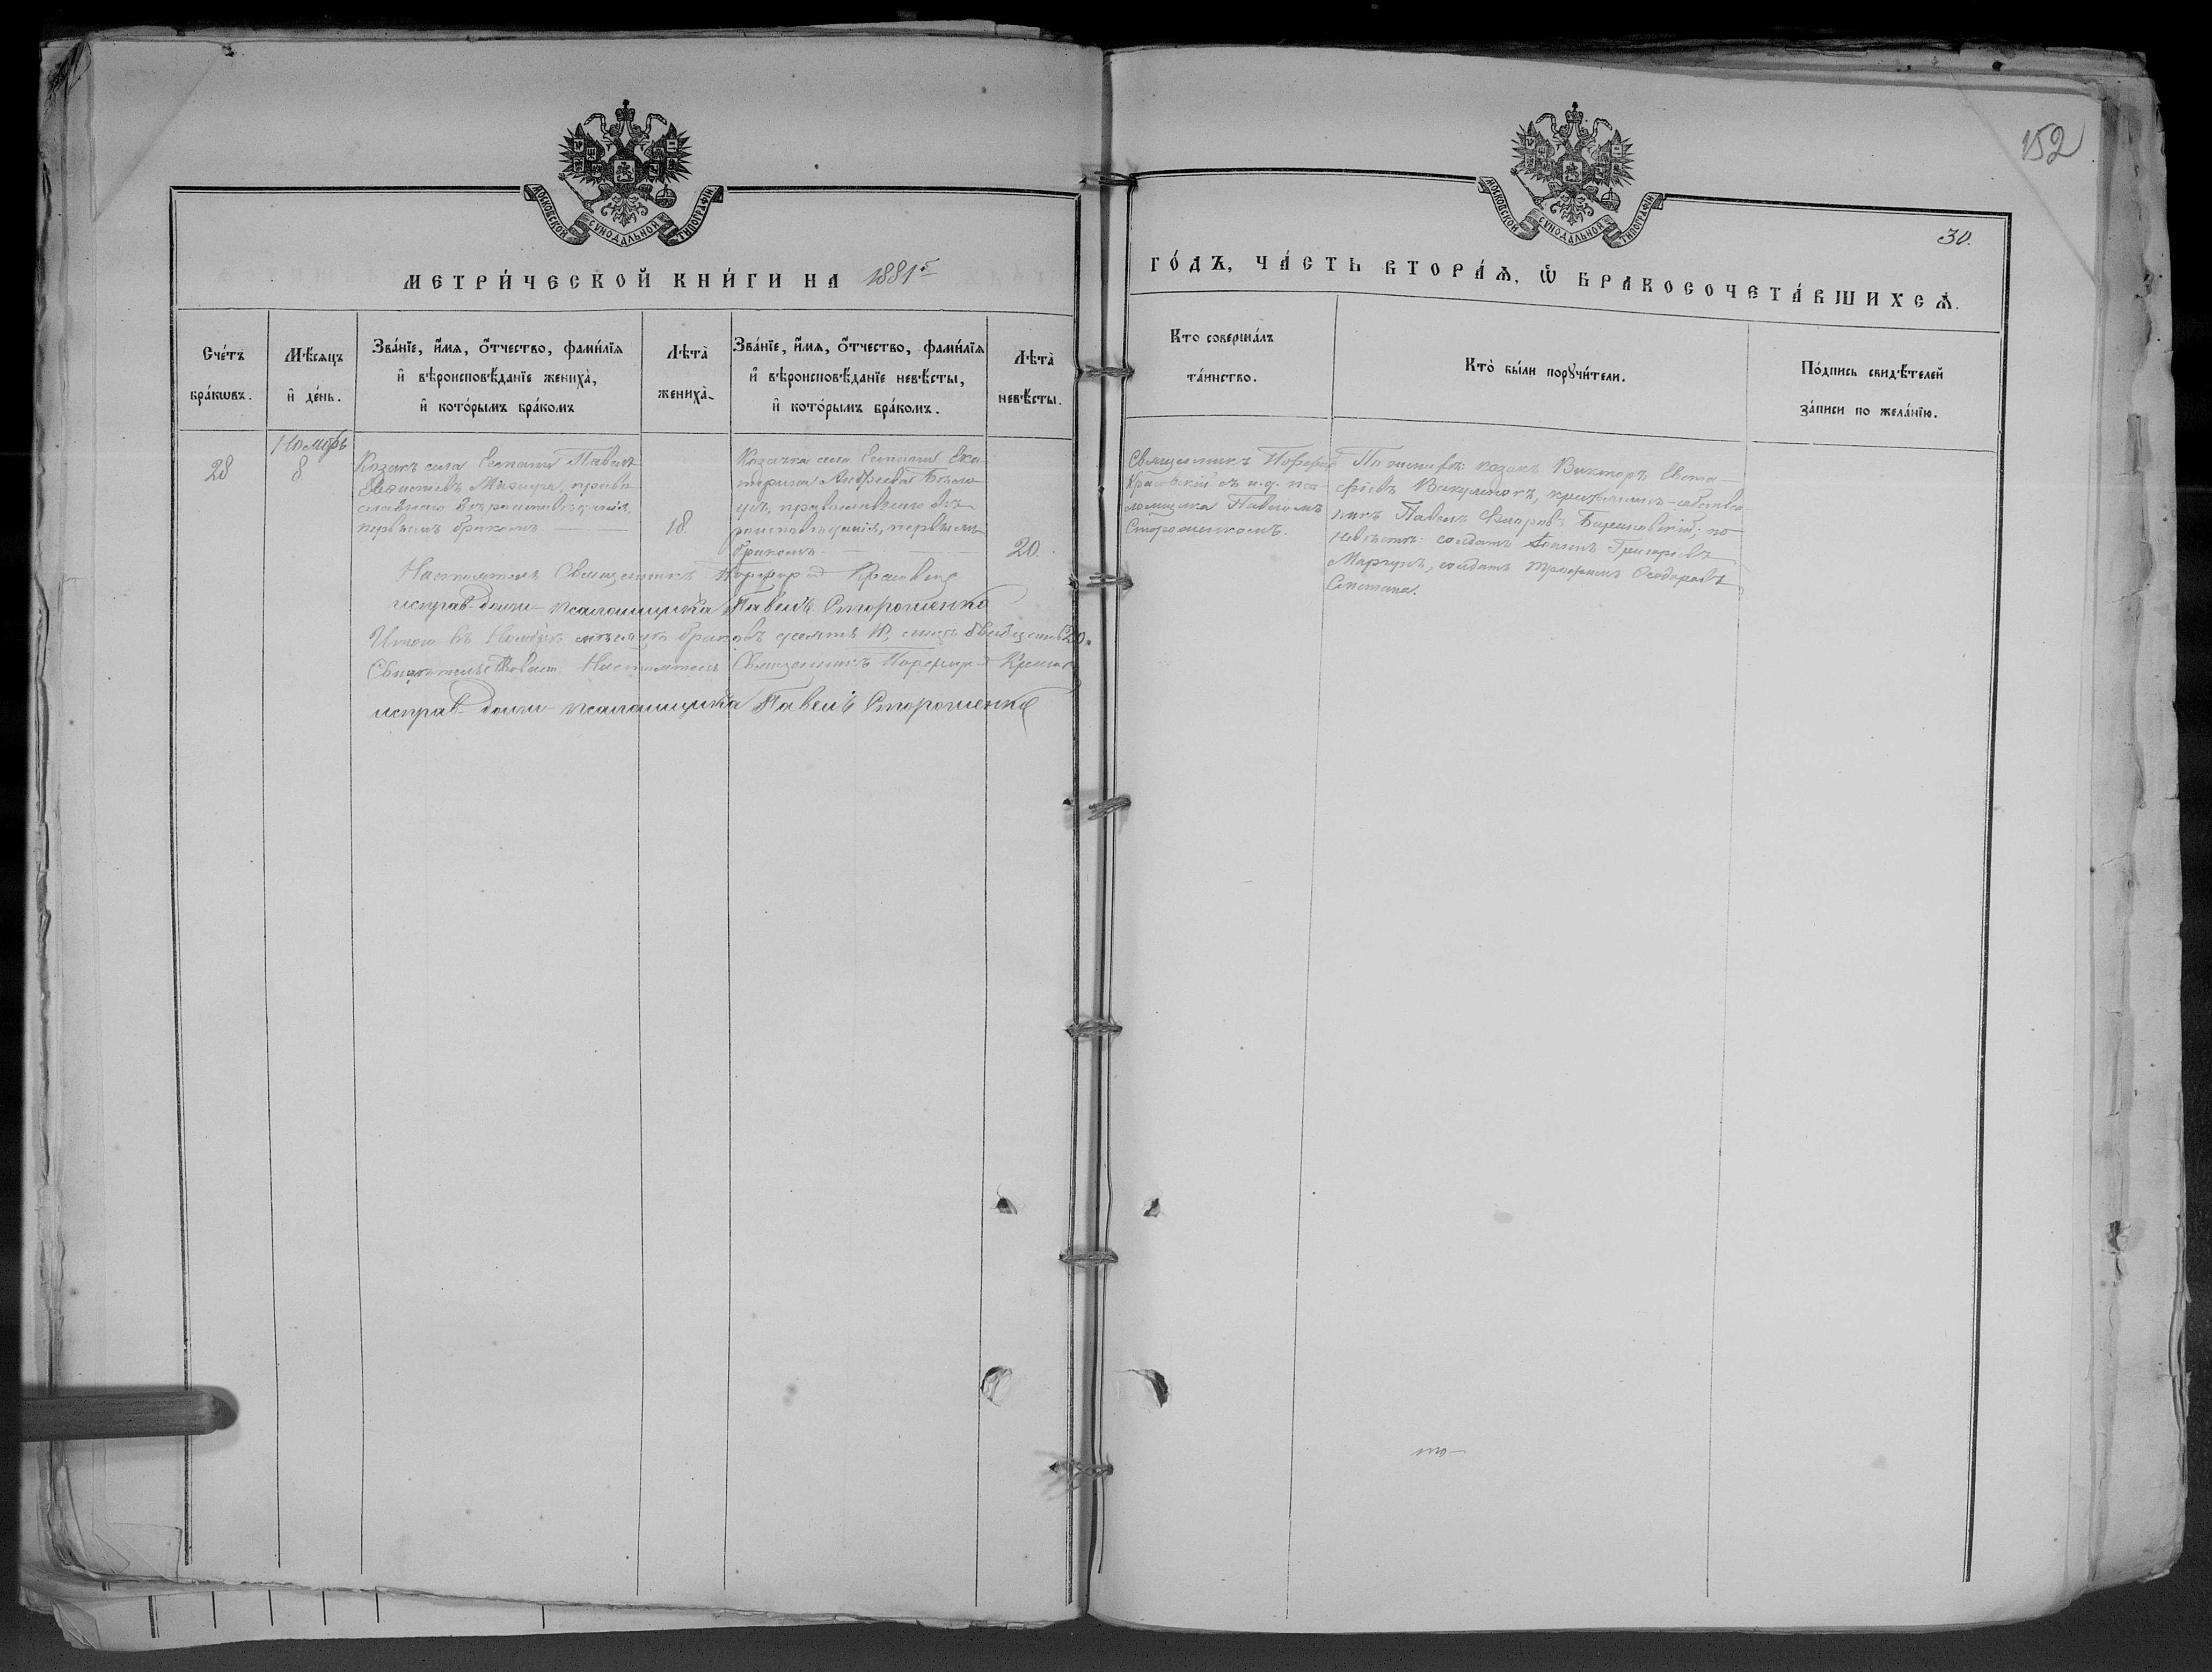 152
МОСКОВСКОЙ СѴНОДАЛЬНОЙ ТИПОГРАФІИ
МОСКОВСКОЙ СѴНОДАЛЬНОЙ ТИПОГРАФІИ
30.
МЕТРИ́ЧЕСКОЙ КНИ́ГИ НА 1881й
ГО́ДЪ, ЧА́СТЬ ВТОРА́Ѧ, Ѽ БРАКОСОЧЕТА́ВШИХСѦ.
Сче́тъ бра́кѡвъ.
Мѣ́сяцъ и҆ де́нь.
Зва́нїе, и҆́мѧ, ѻ҆́тчество, фами́лїѧ
и҆ вѣроисповѣ́данїе жениха̀,
и҆ кото́рымъ бра́комъ
Лѣта̀ жениха̀.
Зва́нїе, и҆́мѧ, ѻ҆́тчество, фами́лїѧ
и҆ вѣроисповѣ́данїе невѣ́сты,
и҆ кото́рымъ бра́комъ.
Лѣта̀ невѣ́сты.
Кто соверша́лъ
та́инство.
Кто̀ бы́ли порꙋчи́тели.
По́дпись свидѣ́телей
за́писи по жела́нїю.
28
Ноябрь
8
Козакъ села Есмани Павелъ
православнаго вѣроисповѣданія,
первымъ бракомъ.
18.
Козачка села Есмани Ека-
терина Андреева
православнаго вѣ-
роисповѣданія, первымъ
бракомъ
20.
Священникъ Порфирій
Красовскій съ и. д. пса-
ломщика Павломъ
Стороженкомъ.
По женихѣ: козакъ Викторъ Евста-
фіевъ Вакуленокъ, крестьянинъ-собствен-
никъ Павелъ по
невѣстѣ: солдатъ Григоріевъ
солдатъ Трофимъ Ѳеодоровъ
Сметана.
Настоятель Священникъ Порфирій Красовскій
исправ. долж. псаломщика Павелъ Стороженко
Итого въ Ноябрѣ мѣсяцѣ браковъ десять
Свидѣтельствовалъ Настоятель Священникъ Порфирій
исправ. долж. псаломщика Павелъ Стороженко